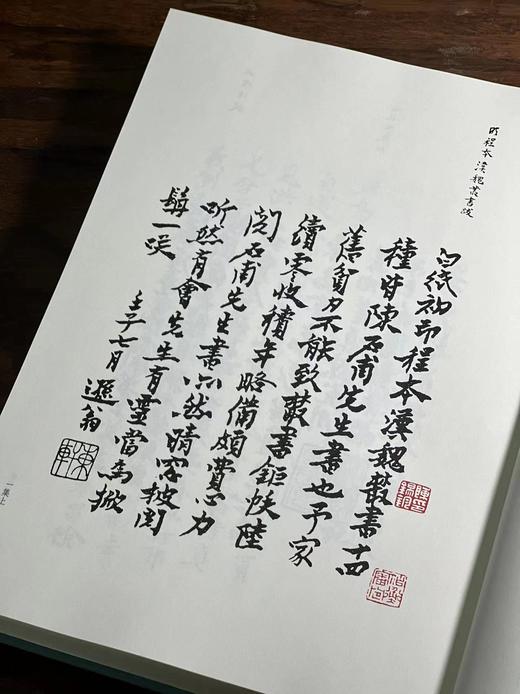 明程本漢魏叢書跋
白紙初印程本漢魏叢書十四
種皆陳石甫先生書也予家
舊貧力不能致叢書鉅帙陸
續零收積年略備頗費心力
閱石甫先生書亦然晴窗披閱
听然有會先生有靈當為掀
髯一咲
壬子七月遯翁
一集上